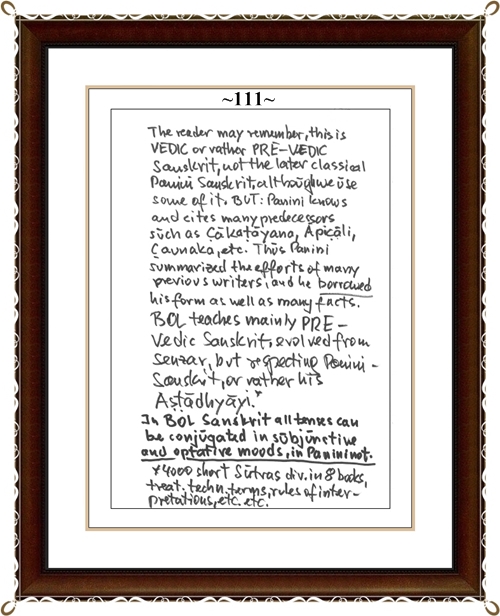 ~111~
The reader may remember, this is
VEDIC or rather PRE-VEDIC
Sanskrit, not the later classical
Panini Sanskrit, although we use
some of it. BUT: Panini knows
and cites many predecessors
such as Çākaṭāyana, Āpiçāli,
Çaunaka, etc. Thus Panini
summarized the efforts of many
previous writers, and he borrowed
his form as well as many facts.
BOL teaches mainly PRE-
Vedic Sanskrit, evolved from
Senzar, but respecting Panini-
Sanskrit, or rather his
Aṣṭādhyāyi.*
In BOL Sanskrit all tenses can
be conjūgated in sūbjūnctive
and optative moods, in Panini not.
*4000 short Sūtras div. in 8 books,
treat. techn. terms, rules of inter-
pretations, etc. etc.